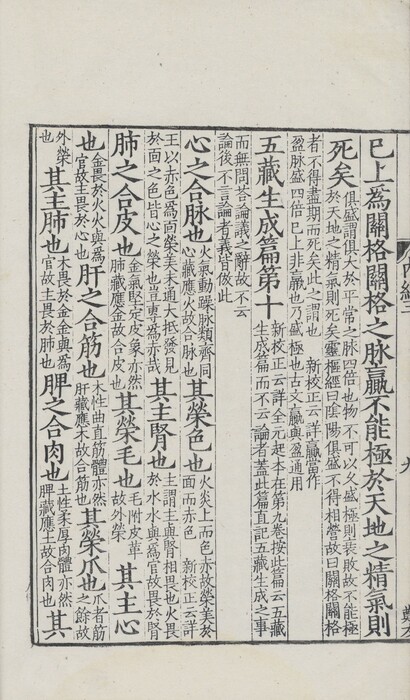 已上爲關格關格之脉羸不能極於天地之精氣則
死矣俱盛謂俱大於平常之脉四倍也物不可以久盛極則衰敗故不能極於天地之精氣則死矣靈樞經曰陰陽俱盛不得相營故曰關格關格
者不得盡期而死矣此之謂也 新校正云詳羸當作盈脉盛四倍已上非羸也乃盛極也古文羸與盈通用
五藏生成篇第十新校正云詳全元起本在第九卷按此篇云五藏生成篇而不云論者蓋此篇直記五藏生成之事
而無問荅論議之辭故不云論後不言論者義皆倣此
心之合脉也火氣動躁脉類齊同心藏應火故合脉也其榮色也火炎上而色赤故榮美於面而赤色 新校正云詳
王以赤色爲面榮美未通大抵發見於面之色皆心之榮也豈專爲赤哉其主腎也主謂主與腎相畏也火畏於水水與爲官故畏於腎
肺之合皮也金氣堅定皮象亦然肺藏應金故合皮也其榮毛也毛附皮革故外榮其主心
也金畏於火火與爲官故主畏於心也肝之合筋也木性曲直筋體亦然肝藏應木故合筋也其榮爪也爪者筋之餘故
外榮也其主肺也木畏於金金與爲官故主畏於肺也脾之合肉也土性柔厚肉體亦然脾藏應土故合肉也其